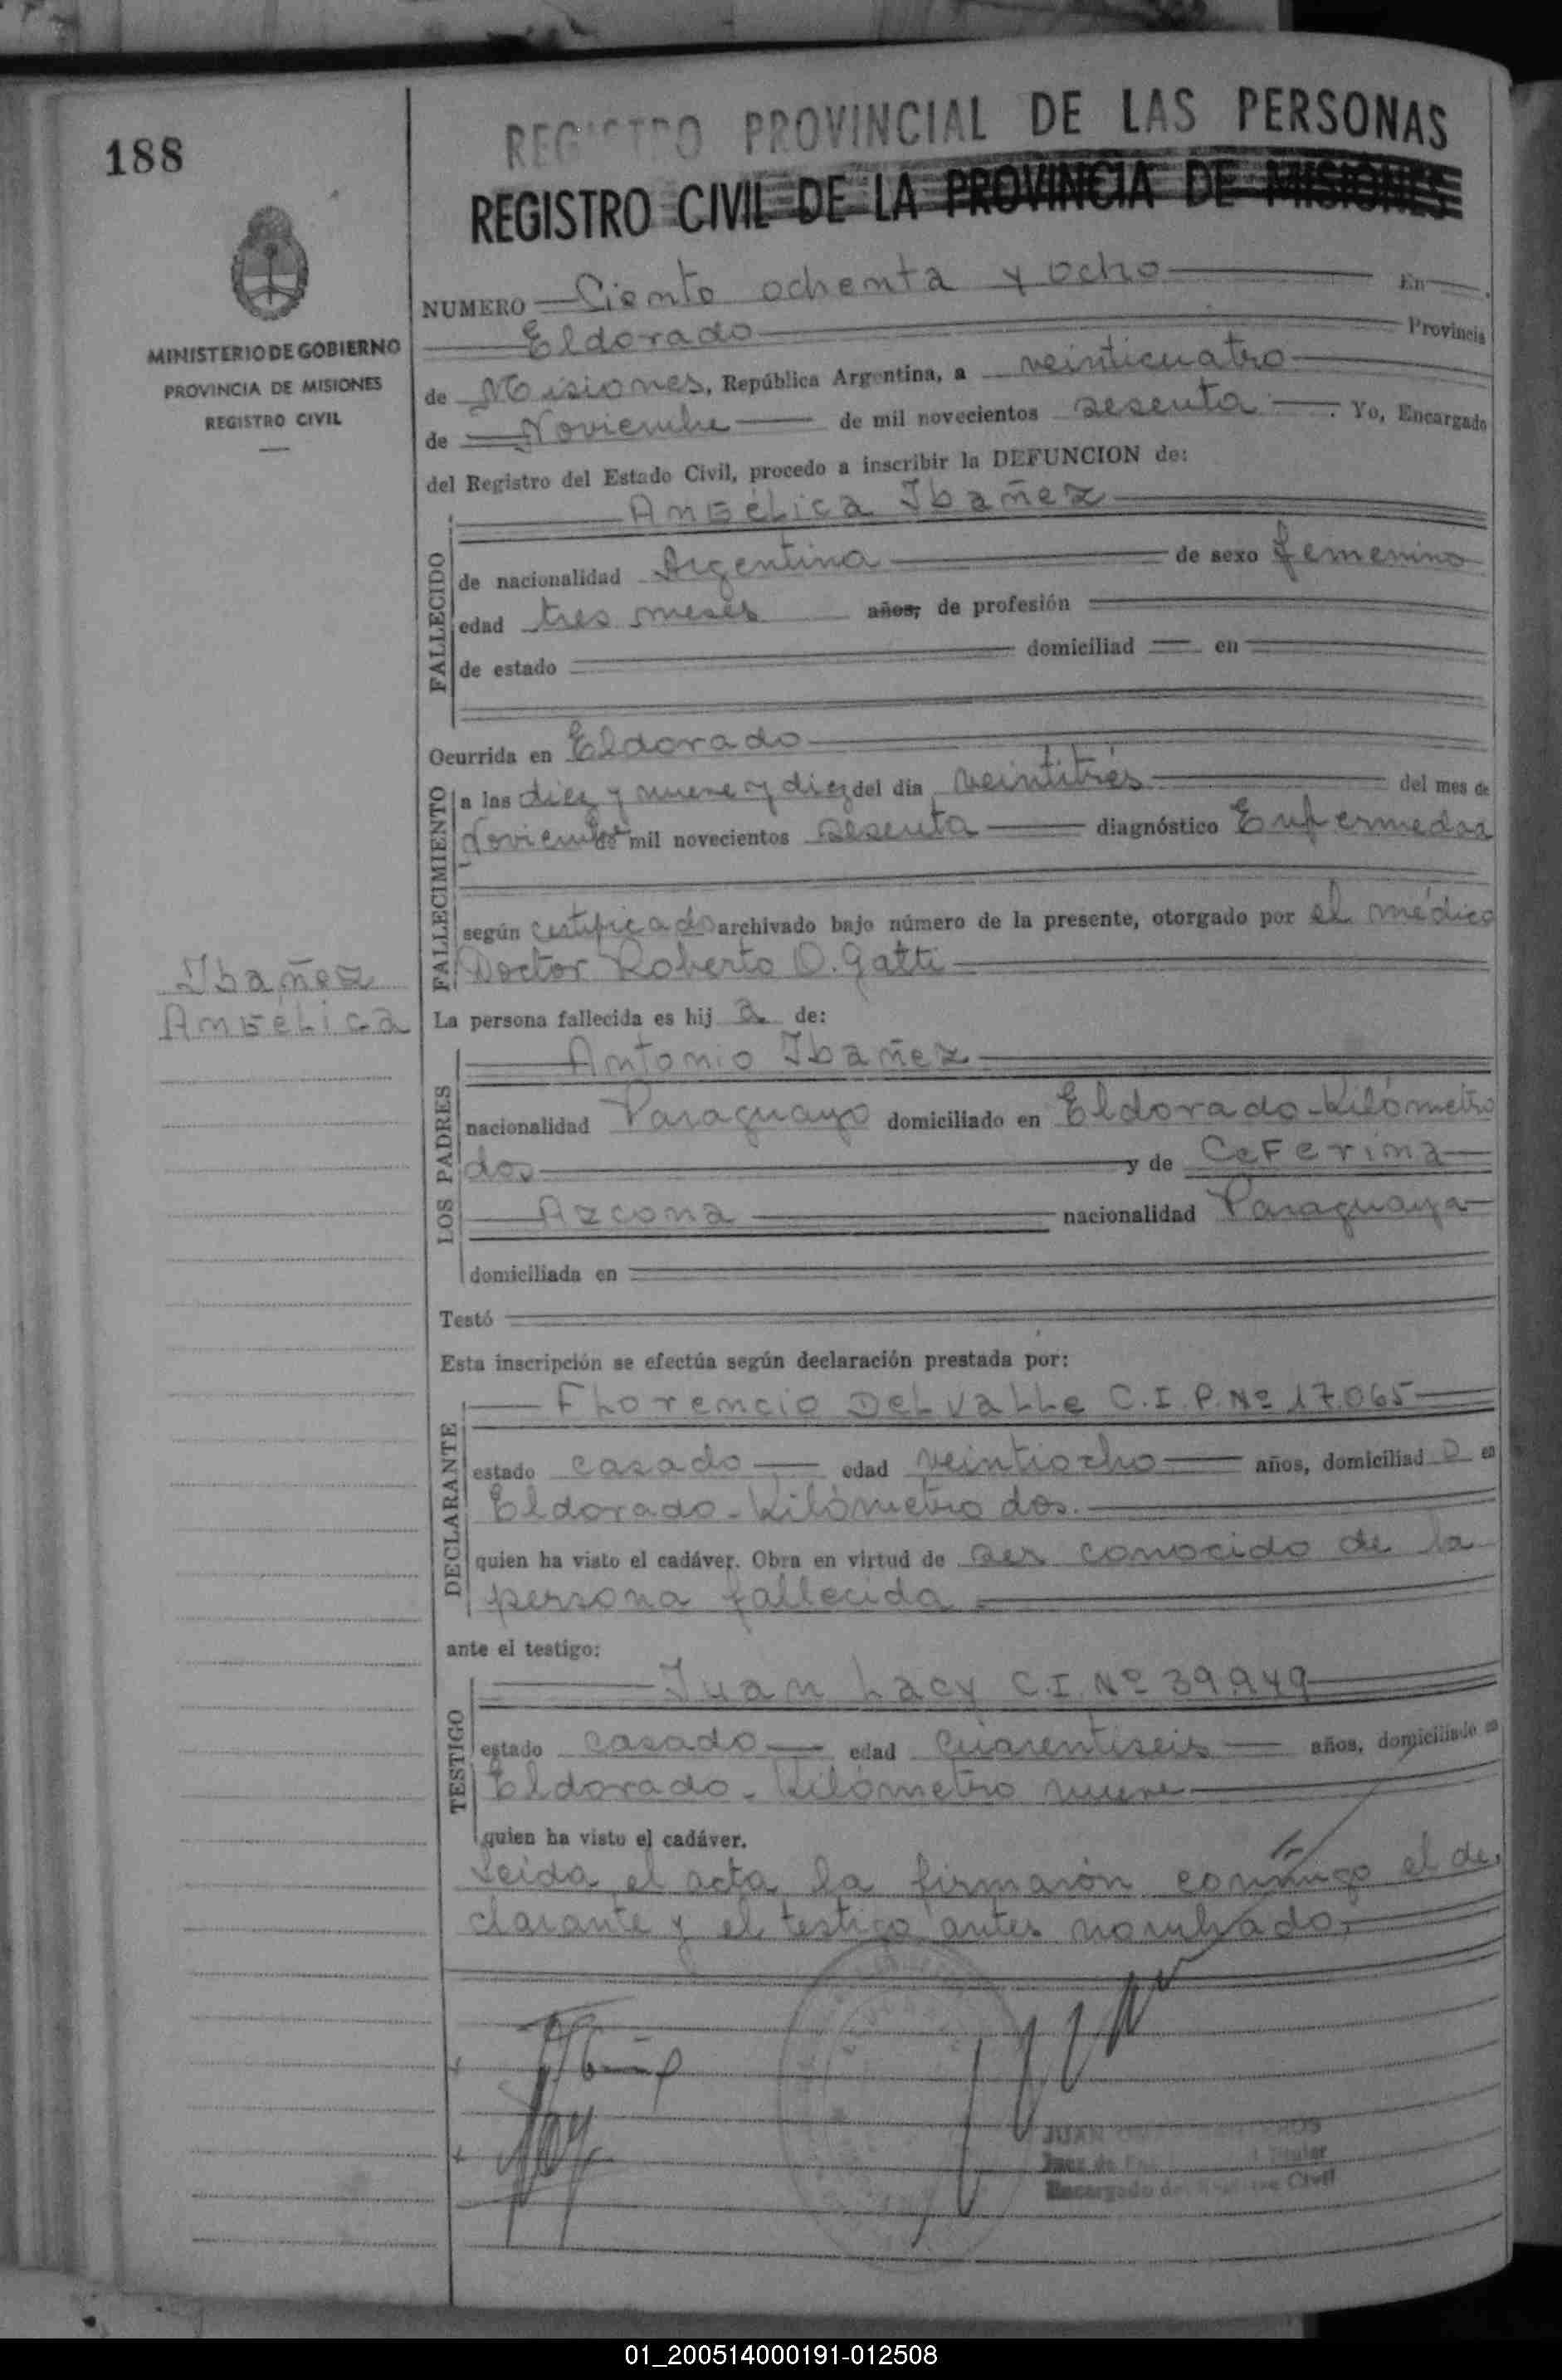 188
REGISTRO PROVINCIAL DE LAS PERSONAS
REGISTRO CIVIL DE LA PROVINCIA DE MISIONES
MINISTERIO DE GOBIERNO
PROVINCIA DE MISIONES
REGISTRO CIVIL
NUMERO Ciento ochenta y ocho En
Eldorado Provincia
de Misiones, República Argentina, a veinticuatro
de Noviembre de mil novecientos sesenta. Yo, Encargado
del Registro del Estado Civil, procedo a inscribir la DEFUNCION de:
FALLECIDO
Angélica Ibañez
de nacionalidad Argentina de sexo femenino
edad tres meses años, de profesión
de estado domiciliad en
Ocurrida en Eldorado
FALLECIMIENTO
a las diez y nueve y diez del día veintitrés del mes de
Noviembre de mil novecientos sesenta diagnóstico Enfermedad
según certificado archivado bajo número de la presente, otorgado por el médico
Doctor Roberto O. Gatti
Ibañez
Angelica
La persona fallecida es hij a de:
LOS PADRES
Antonio Ibañez
nacionalidad Paraguayo domiciliado en Eldorado-Kilómetro
dos y de Ceferina
Azcona nacionalidad Paraguaya
domiciliada en
Testó
Esta inscripción se efectúa según declaración prestada por:
DECLARANTE
Florencio Delvalle C.I.P. Nº 17.065
estado casado edad veintiocho años, domiciliad o en
Eldorado-Kilómetro dos.
quien ha visto el cadáver. Obra en virtud de ser conocido de la
persona fallecida
ante el testigo:
TESTIGO
Juan Lacy C.I. Nº 39.949
estado casado edad cuarentiseis años, domiciliado en
Eldorado-Kilómetro nueve
quien ha visto el cadáver.
Leída el acta la firmarón conmigo el de,
clarante y el testigo antes nombrado,
JUAN
Juez de Titular
Encargado del Registro Civil
01_200514000191-012508